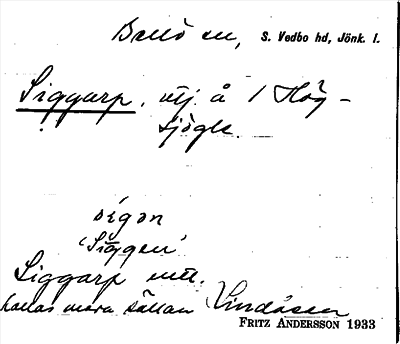 Bellö sn, S. Vedbo hd, Jönk. l.
Siggarp, utj. å 1 Hög-
sjögle.
sigən
'Siggen'
Siggarp
kallas mera sällan Lindåsen
FRITZ ANDERSSON 1933